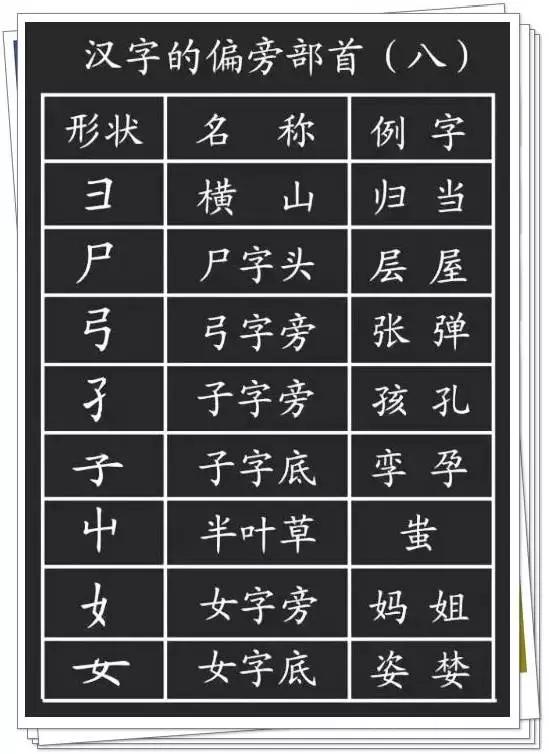 汉字的偏旁部首（八）
形状 名称 例字
彐 横山 归当
尸 尸字头 层屋
弓 弓字旁 张弹
孑 子字旁 孩孔
子 子字底 孪孕
屮 半叶草 蚩
女 女字旁 妈姐
女 女字底 姿婪